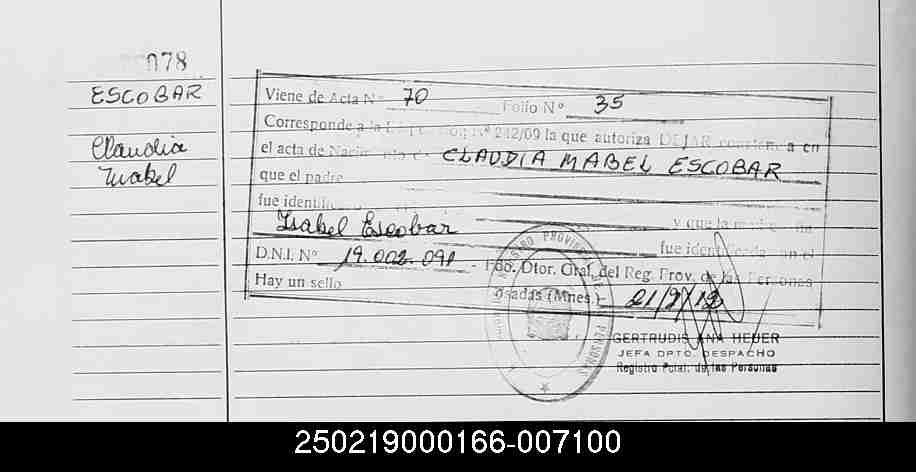 078
ESCOBAR
Claudia
Mabel
Viene de Acta Nº 70 Folio Nº 35
Corresponde a la Nº 242/09 la que autoriza DEJAR en
el acta de CLAUDIA MABEL ESCOBAR
que el padre
fue y que la
Isabel Escobar fue en el
D.N.I. Nº 19.002.091 - Fdo. Dtor. Gral. del Reg. Prov. de las Personas
Hay un sello (Mnes.) 21/9/12
REGISTRO PROVINCIAL DE LAS PERSONAS
GERTRUDIS ANA HEUER
JEFA DPTO. DESPACHO
Registro Pcial. de las Personas
250219000166-007100